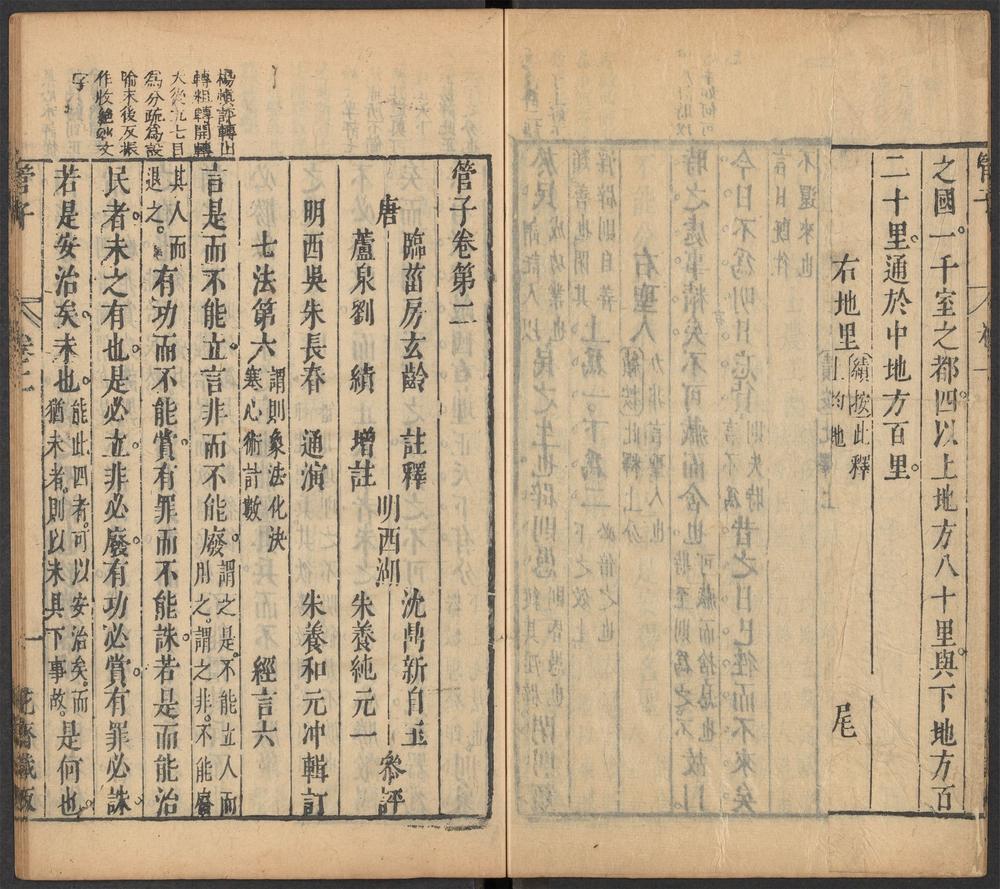 之國一千室之都四以上地方八十里與下地方百
二十里通於中地方百里
右地里
續按此釋
上均地
尾
管子卷第二
唐
臨菑房玄齡 註釋
蘆泉劉 績 增註
明西吳朱長春 通演
明西湖
沈鼎新自玉
朱養純元一
參評
朱養和元冲輯訂
七法第六
謂則象法化決
塞心術計數
經言六
言是而不能立言非而不能廢
謂之是不能立人而
用之謂之非不能廢
其人而
退之
有功而不能賞有罪而不能誅若是而能治
民者未之有也是必立非必廢有功必賞有罪必誅
若是安治矣未也
能此四者可以安治矣而
猶未者則以未具下事故
是何也
楊慎評轉山
轉粗轉開轉
大後九七目
為分疏為設
喻末後反振
作收絕妙文
字
管子
卷二
一
花齋藏板